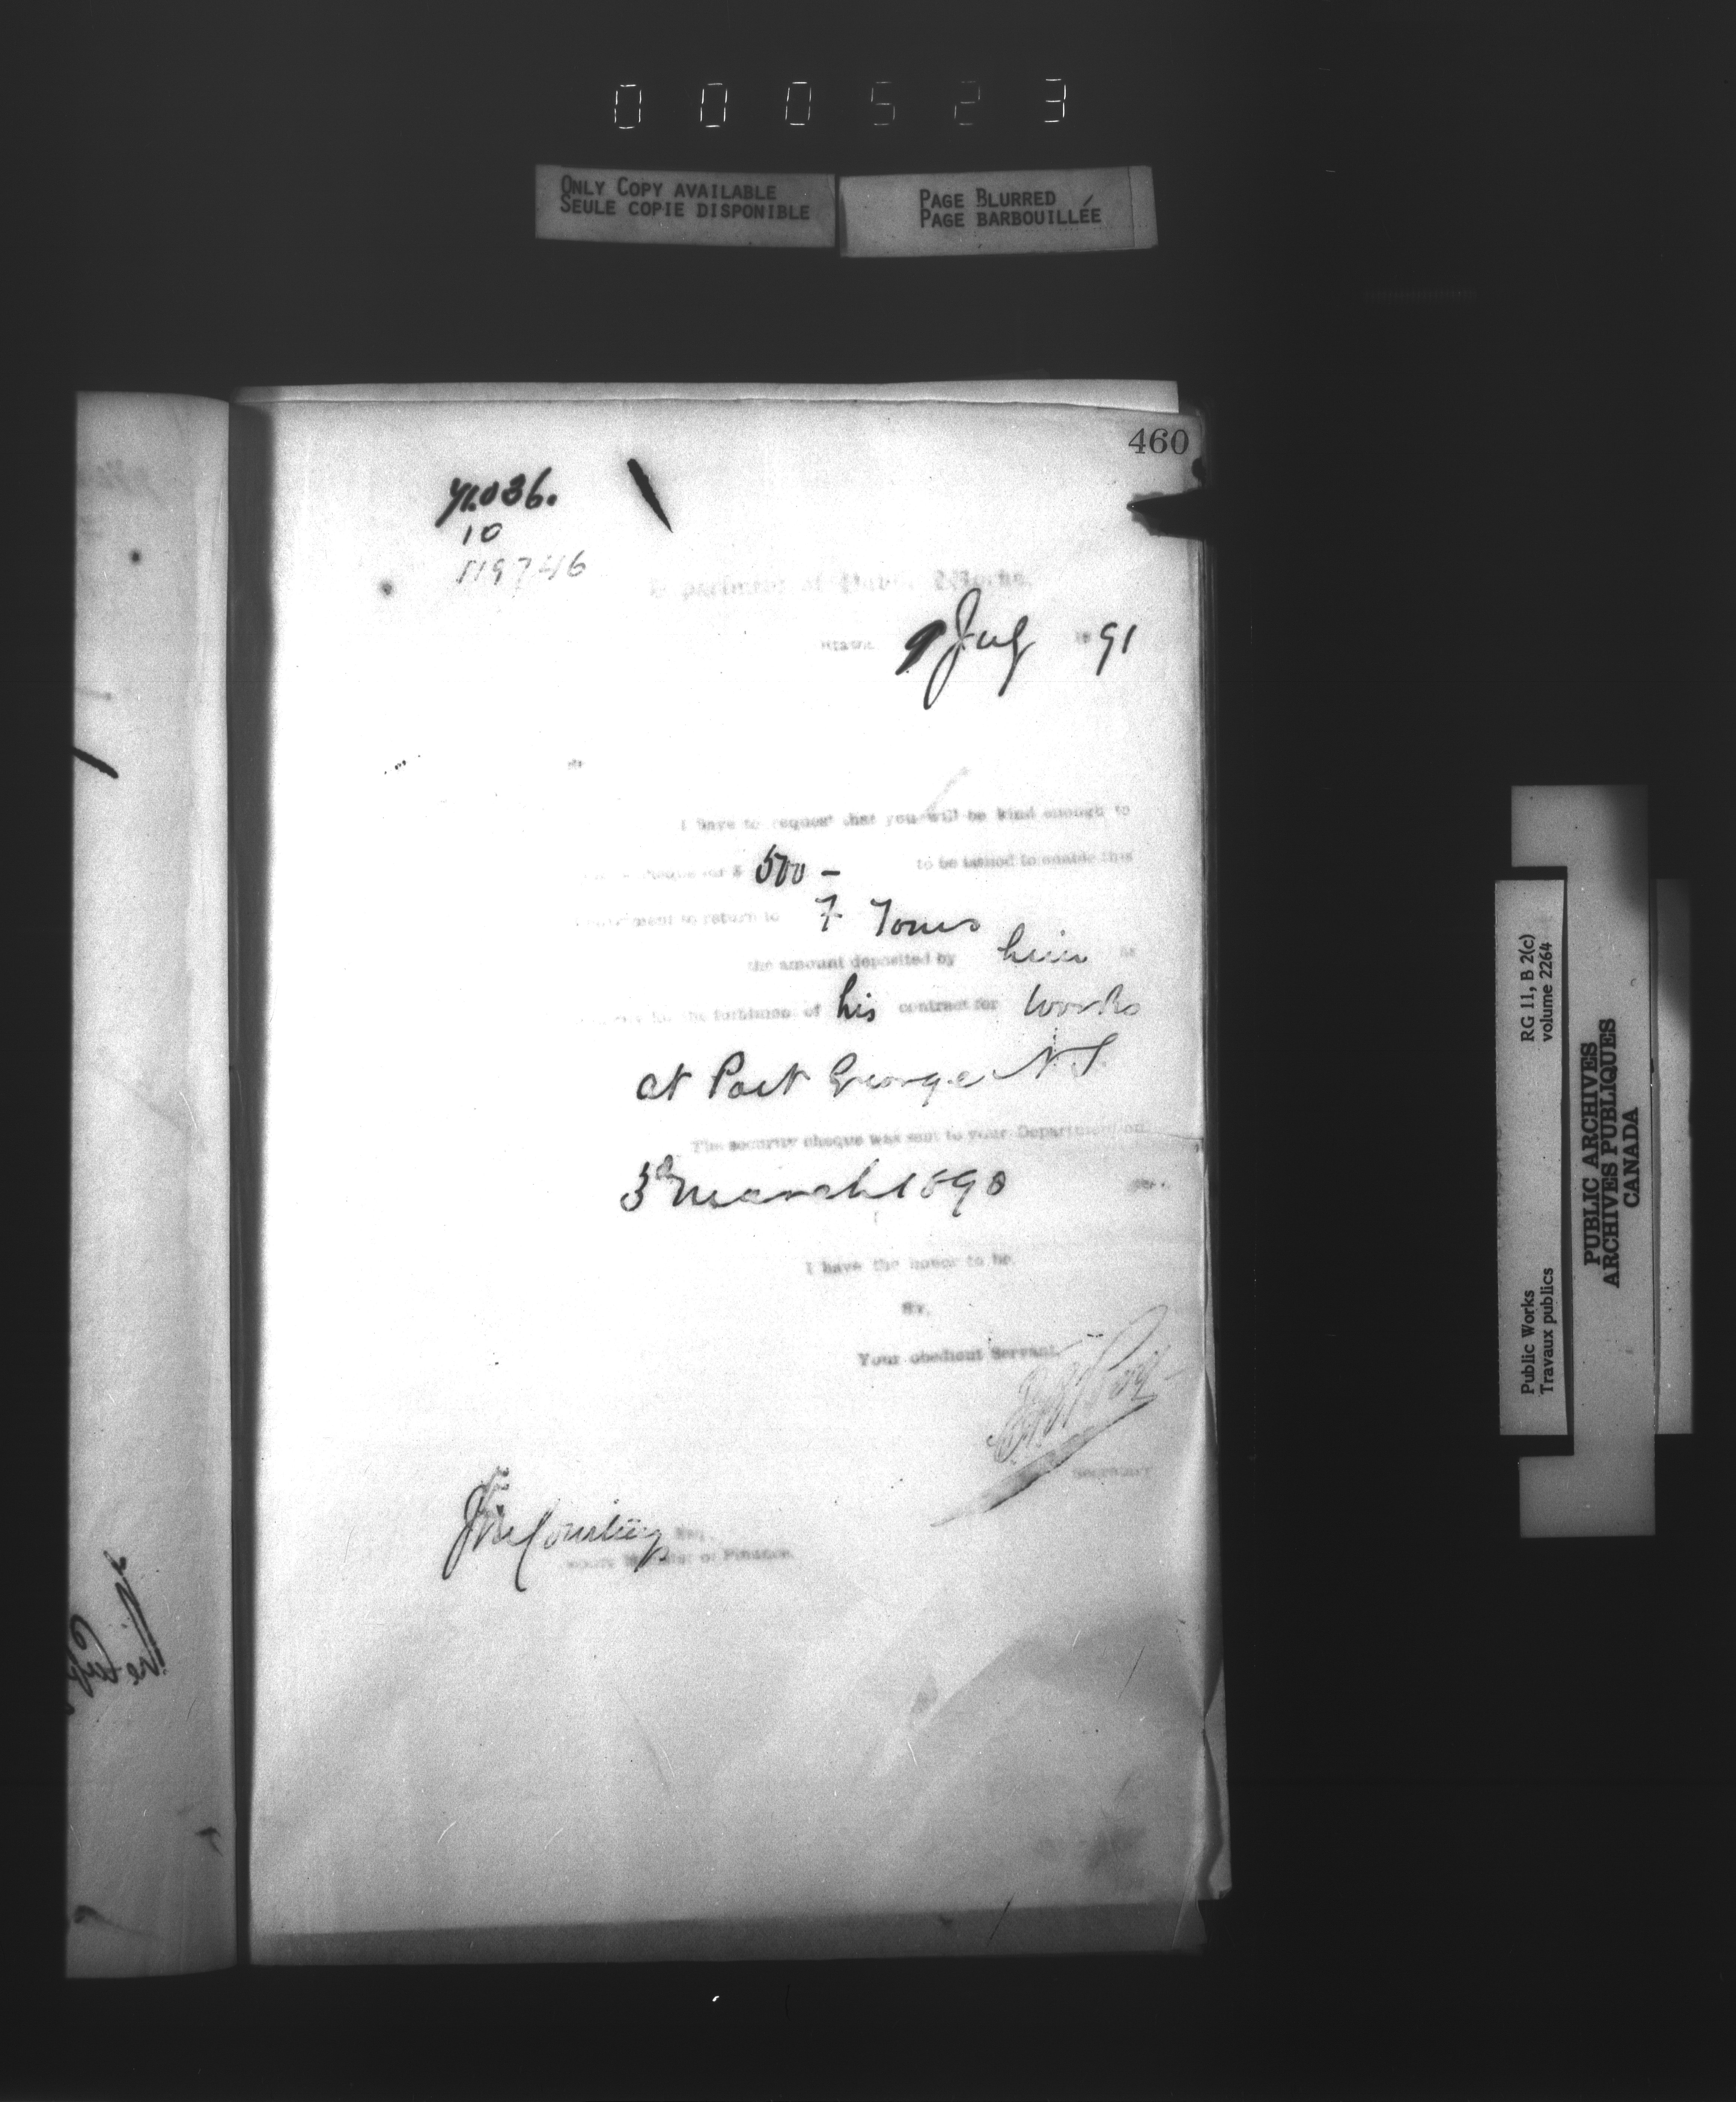 000523
ONLY COPY AVAILABLE
SEULE COPIE DISPONIBLE
PAGE BLURRED
PAGE BARBOUILLÉE
460
10
119746
Department of Public Works.
Ottawa 9 July 1891
Sir
I have to request that you will be kind enough to
cheque for $ 500 - to be issued to enable this
Department to return to F Tomes
the amount deposited by him as
security for the fulfilment of his contract for Works
at Port George N.S.
The security cheque was sent to your Department on
3d March 1890
I have the honor to be,
Sir,
Your obedient Servant,
Secretary
J M Courtney Esq.
Deputy Minister of Finance.
RG 11, B 2(c)
volume 2264
Public Works
Travaux publics
PUBLIC ARCHIVES
ARCHIVES PUBLIQUES
CANADA